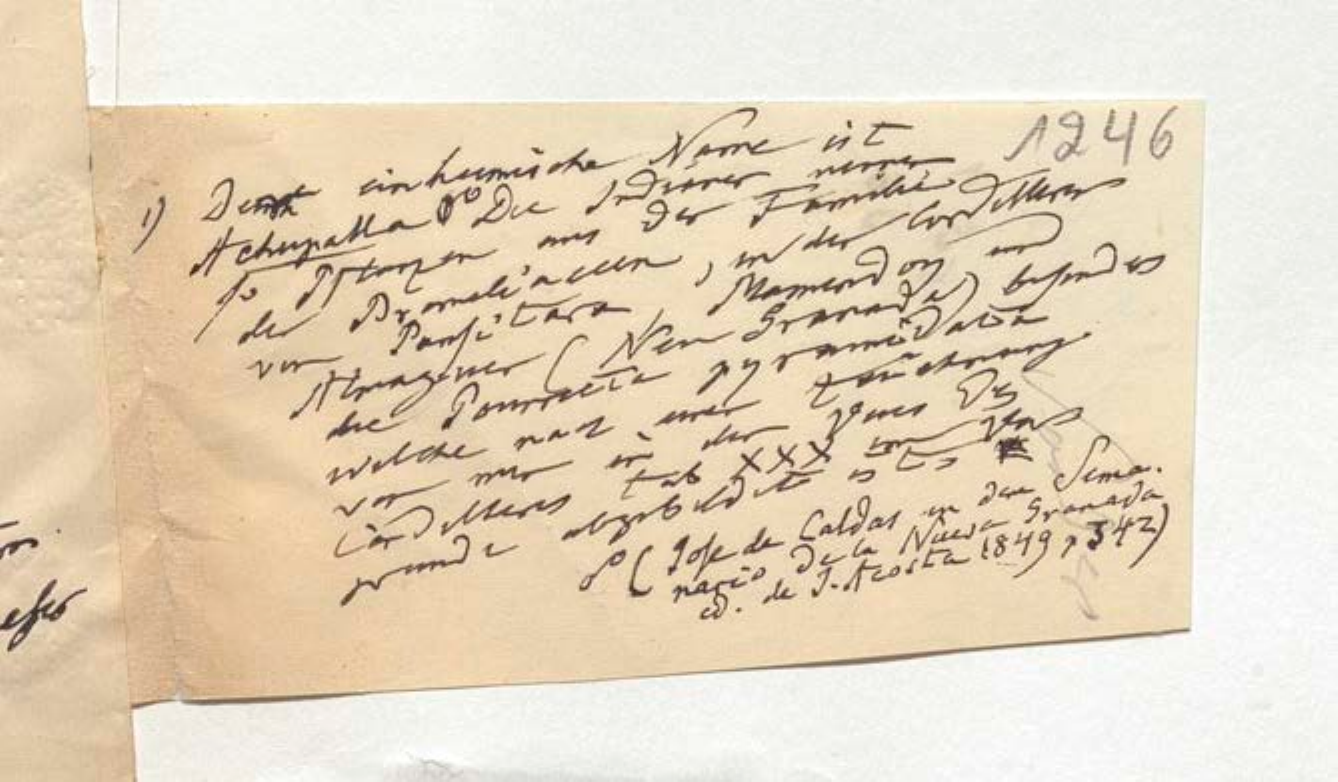 1246
1) Der einheimische Name ist
Achupalla Die Indianer nennen
so Pflanzen aus der Familie
der Bromeliaceen, in der Cordillere
von Pansitara
Almaguer (Neu Granada) befindet es
die Pourretia pyramidata
welche nach einer Zeichnung
von mir in der Vues des
Cordilleres tab XXX im Vor
grunde abgebildet ist
(Jose de Caldas in den Sema.
nario de la Nueva Granada
ed. de J. Acosta 1849 p 342)